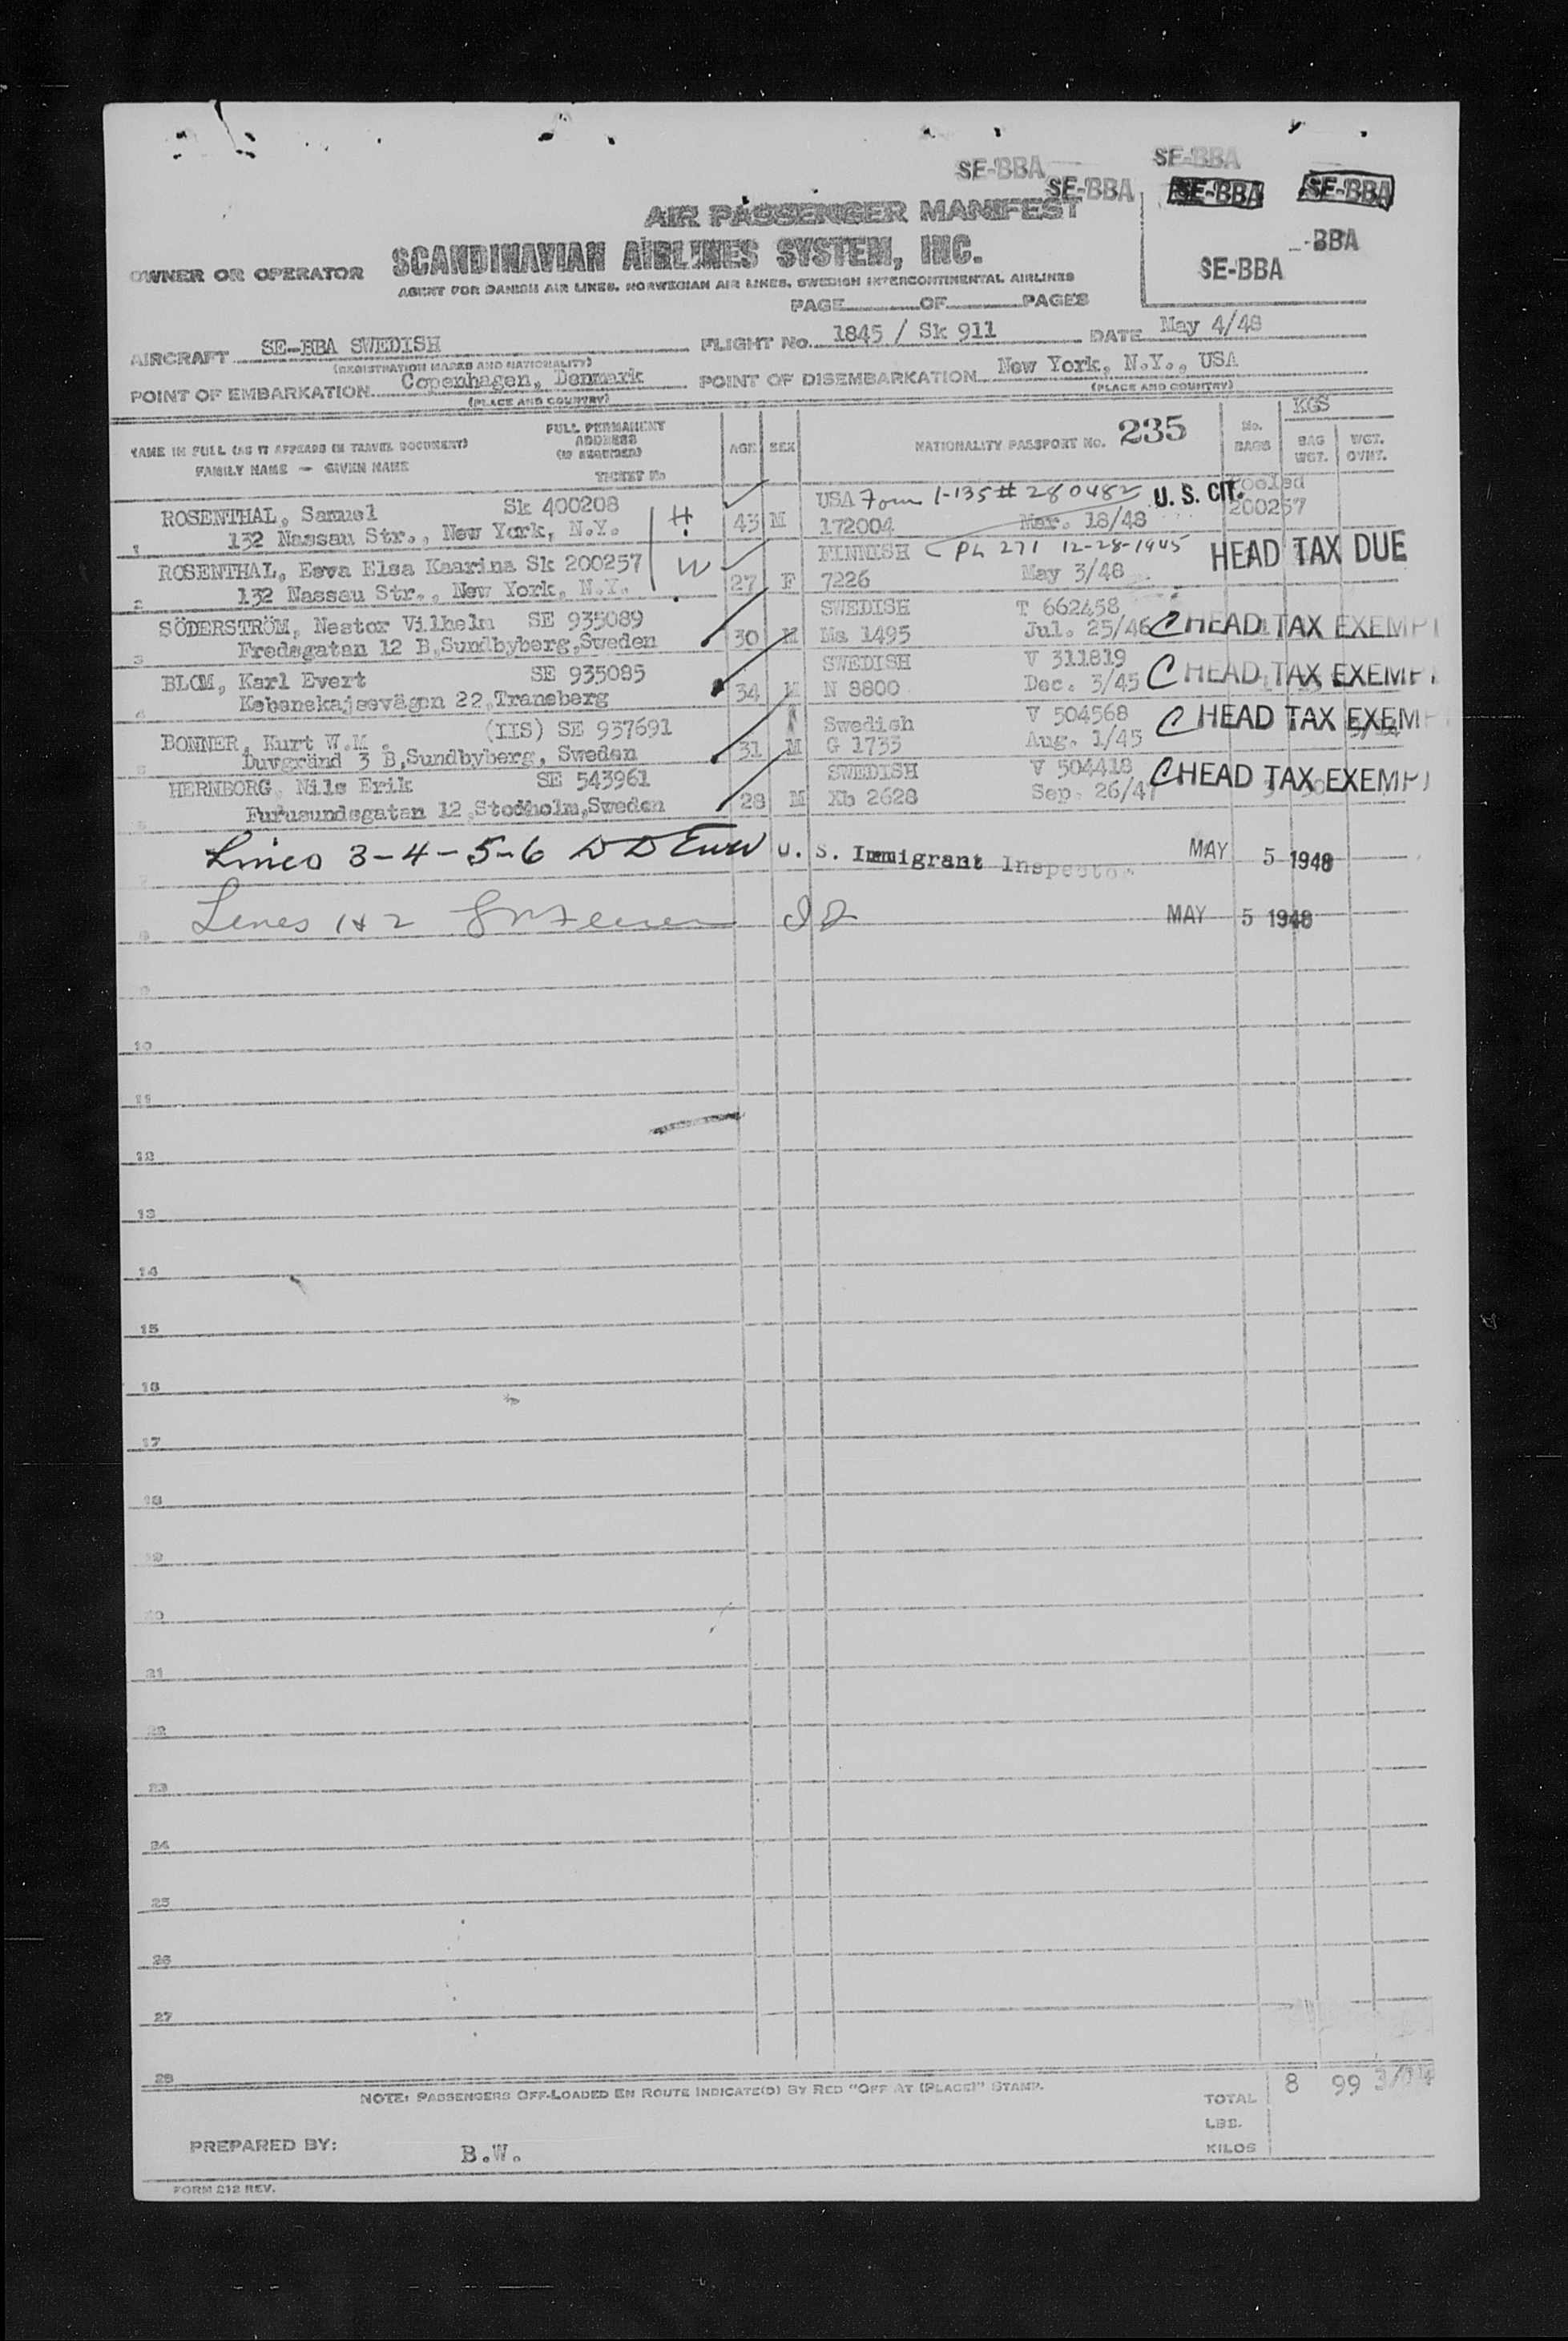 SE-BBA SE-BBA
SE-BBA SE-BBA SE-BBA
AIR PASSENGER MANIFEST
-BBA
OWNER OR OPERATOR SCANDINAVIAN AIRLINES SYSTEM, INC.
SE-BBA
AGENT FOR DANISH AIR LINES, NORWEGIAN AIR LINES, SWEDISH INTERCONTINENTAL AIRLINES
PAGE OF PAGES
AIRCRAFT SE-BBA SWEDISH FLIGHT No. 1845 / Sk 911 DATE May 4/48
(REGISTRATION MARKS AND NATIONALITY)
POINT OF EMBARKATION Copenhagen, Denmark POINT OF DISEMBARKATION New York, N.Y., USA
(PLACE AND COUNTRY) (PLACE AND COUNTRY)
KGS
NAME IN FULL (AS IT APPEARS IN TRAVEL DOCUMENT) FULL PERMANENT ADDRESS (IF REQUIRED) AGE SEX NATIONALITY PASSPORT No. 235 No. BAGS BAG WGT. WGT. OVHT.
FAMILY NAME — GIVEN NAME TICKET No
ROSENTHAL, Samuel Sk 400208 H. 43 M USA Form 1-135# 280482 U. S. CIT. Pooled
1 132 Nassau Str., New York, N.Y. 172004 Mar. 18/48 200257
ROSENTHAL, Eeva Elsa Kaarina Sk 200257 W FINNISH PL 271 12-28-1945 HEAD TAX DUE
2 132 Nassau Str., New York, N.Y. 27 F 7226 May 3/48
SÖDERSTRÖM, Nestor Vilhelm SE 935089 SWEDISH T 662458
3 Fredsgatan 12 B,Sundbyberg,Sweden 30 M Ma 1495 Jul. 25/46 C HEAD TAX EXEMPT
BLOM, Karl Evert SE 935085 SWEDISH V 311819
4 Kebenekajsevägen 22,Traneberg 34 M N 8800 Dec. 3/45 C HEAD TAX EXEMPT
(IIS) SE 937691 Swedish V 504568
BONNER, Kurt W.M. C HEAD TAX EXEMP
5 Duvgränd 3 B,Sundbyberg, Sweden 31 M G 1733 Aug. 1/45
HERNBORG, Nils Erik SE 543961 SWEDISH V 504418 C HEAD TAX EXEMPT
6 Furusundsgatan 12,Stocholm,Sweden 28 M Xb 2628 Sep. 26/47
7 Lines 3-4-5-6 U. S. Immigrant Inspector MAY 5 1948
8 Lines 1 & 2 MAY 5 1948
9
10
11
12
13
14
15
16
17
18
19
20
21
22
23
24
25
26
27
28
NOTE: PASSENGERS OFF-LOADED EN ROUTE INDICATE(D) BY RED "OFF AT (PLACE)" STAMP. 8 99
TOTAL
LBS.
PREPARED BY: B.W. KILOS
FORM 212 REV.